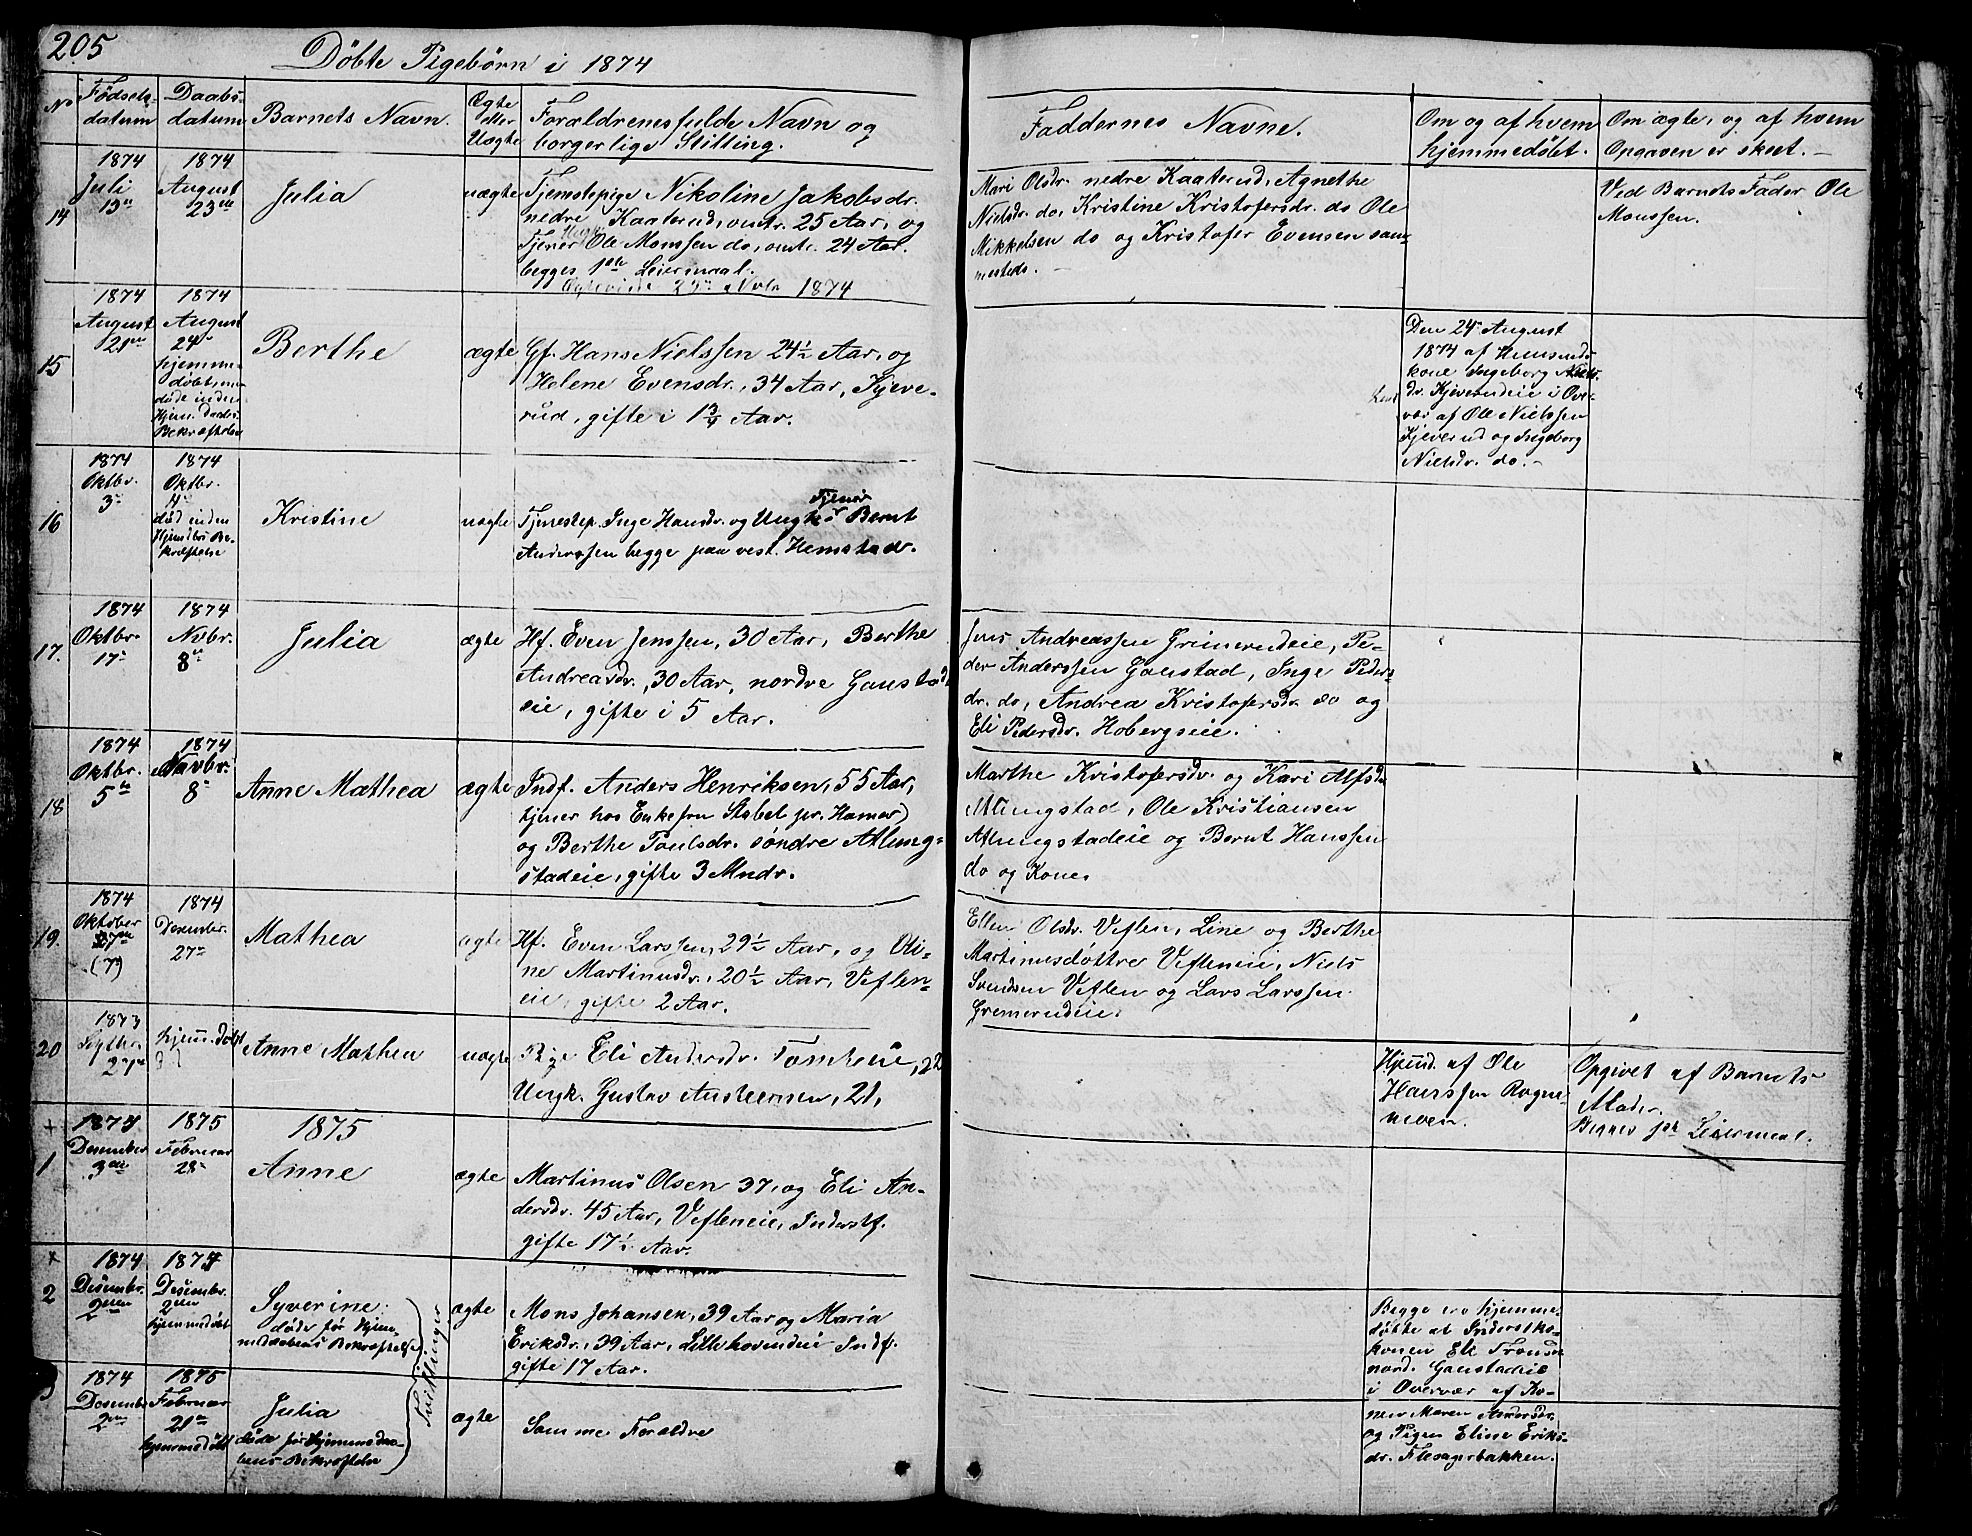 205
Döbte Pigebörn i 1874
No
Födsels-
datum
Daabs-
datum
Barnets Navn.
Ægte
eller
Uægte
Forældrenes fulde Navn og
borgerlige Stilling.
Faddernes Navne.
Om og af hvem
hjemmedöbt.
Om ægte, og af hvem
Opgaven er skeet. —
14
1874
Juli
13n
1874
August
23de
Julia
uægte
Tjenstepige Nikoline Jakobsdr.
nedre Kaaterud, omtr. 25 Aar, og
Ungk.
Tjener Ole Monssen do, omtr. 24 Aar.
begges 1ste Leiermaal.
Ægteviede 29n Novbr 1874
Mari Olsdr. nedre Kaaterud, Agnethe
Nielsdr. do, Kristine Kristofersdr. do Ole
Mikkelsen do og Kristofer Evensen sam-
mesteds. —
Ved Barnets Fader Ole
Monssen.
15
1874
August
21de
1874
August
24
hjemme-
döbt, men
döde inden
Hjem. Daabs
Bekræftelse
Berthe
ægte
Gf. Hans Nielssen 24½ Aar, og
Helene Evensdr., 34 Aar, Kjeve-
rud, gifte i 1¾ Aar.
Den 24de August
1874 af Huusmds-
kone Ingeborg Niels-
dr. Kjeverudeie i Over-
vær af Ole Nielssen
Kjeverud og Ingeborg
Nielsdr. do. —
16
1874
Oktbr.
3
1874
Oktbr.
4
död inden
Hjemdbs Be-
kræftelse
Kristine
uægte
Tjener
Tjenestep. Inge Hansdr. og Ungk. Bernt
Anderssen begge paa vest. Hemstad.
17.
1874
Oktbr.
17
1874
Novbr.
8de
Julia
ægte
Hf. Even Jenssen, 30 Aar, Berthe
Andreasdr., 30 Aar, nordre Gaustad
eie, gifte i 5 Aar.
Jens Andreassen Grimerudeie, Pe-
der Anderssen Gaustad, Inge Peders-
dr. do, Andrea Kristofersdr. do og
Eli Pedersdr. Hobergseie.
18
1874
Oktbr.
5te
1874
Novbr.
8
Anne Mathea
ægte
Indf. Anders Henriksen, 55 Aar,
tjener hos Enkefru Stabel pr. Hamar)
og Berthe Poulsdr. söndre Atlung-
stadeie, gifte 3 Mndr.
Marthe Kristofersdr. og Kari Alfsdr.
Atlungstad, Ole Kristiansen
Atlungstadeie og Bernt Hanssen
do og Kone.
19.
1874
Oktober
27de
(7)
1874
Desember
27
Mathea
ægte
Hf. Even Larssen, 29½ Aar, og Oli-
ne Martinusdr., 20½ Aar, Veflen-
eie, gifte 2 Aar.
Ellen Olsdr. Veflen, Line og Berthe
Martinusdöttre Vefleneie, Niels
Svendsen Veflen og Lars Larssen
Gremerudeie.
20
1873
Septbr.
27de
hjem. döbt
Anne Mathea
uægte
Pige Eli Andersdr. Tomteeie, 22
Ungk. Gustav 21,
Hjemd. af Ole
Hanssen
Opgivet af Barnets
Moder.
Begges 1ste Leiermaal.
+
1
1874
Desember
3die
1875
Februar
28
1875
Anne
ægte
Martinus Olsen 37, og Eli An-
dersdr. 45 Aar, Vefleneie, Inderstf.
gifte 17½ Aar.
+
2
1874
Desembr.
2den
1874
Desembr.
2den
hjemmedöbt
Syverine
döde för Hjem-
medaabens Bekræftelse
Tvillinger
ægte
Mons Johansen, 39 Aar og Maria
Eriksdr., 39 Aar, Lillehovendeie Indf.
gifte 17 Aar.
Begge ere hjemme-
döbte af Inderstko-
konen Eli Tronds
nord. Gaustadeie
i Overvær af Ko-
nen Maren Andersdr.
og Pigen Elisse Eriks-
dr. Flesagerbakken.
3
1874
Desembr
2den
1875
Februar
21de
hjemmedöbt
Julia
döde för Hjemmedaa-
bens Bekræftelse
ægte
Samme Forældre